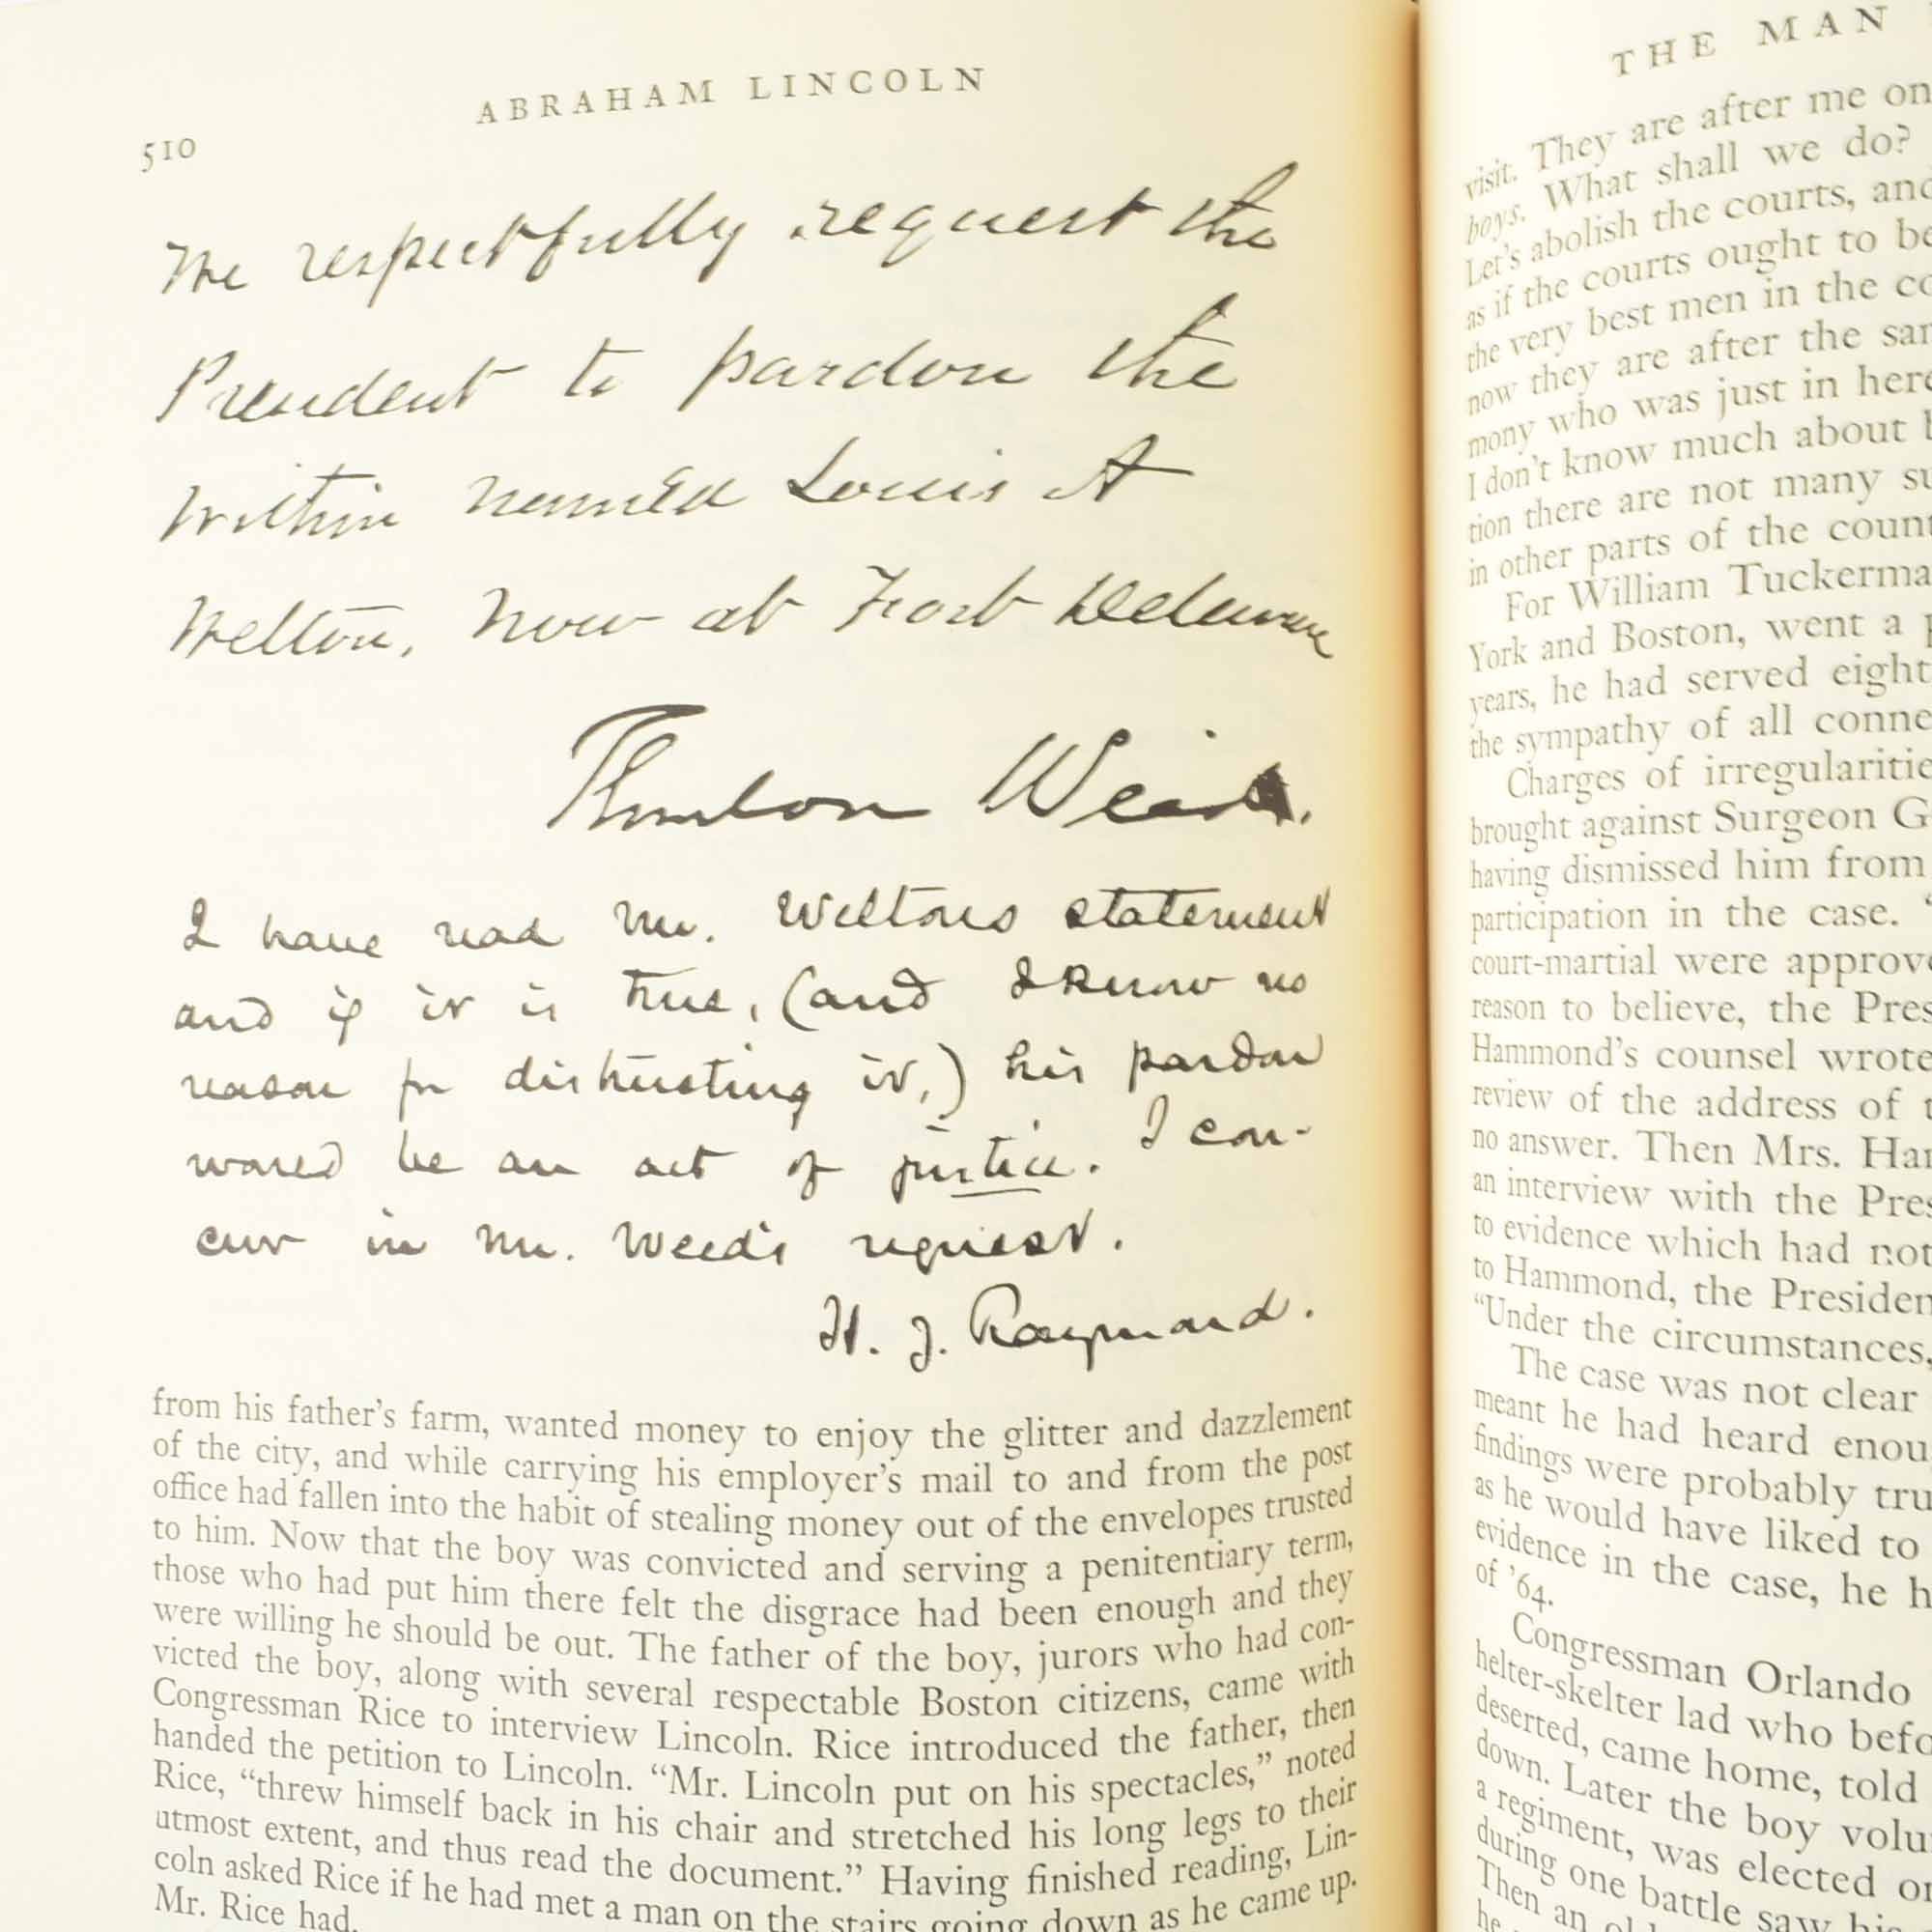 ABRAHAM LINCOLN
510
We respectfully request the
President to pardon the
within named Louis A
Welton, now at Fort Delaware
Thurlow Weed.
I have read Mr. Weltons statement
and if it is true, (and I know no
reason for distrusting it,) his pardon
would be an act of justice. I con-
cur in Mr. Weed's request.
H. J. Raymond.
from his father's farm, wanted money to enjoy the glitter and dazzlement
of the city, and while carrying his employer's mail to and from the post
office had fallen into the habit of stealing money out of the envelopes trusted
to him. Now that the boy was convicted and serving a penitentiary term,
those who had put him there felt the disgrace had been enough and they
were willing he should be out. The father of the boy, jurors who had con-
victed the boy, along with several respectable Boston citizens, came with
Congressman Rice to interview Lincoln. Rice introduced the father, then
handed the petition to Lincoln. “Mr. Lincoln put on his spectacles,” noted
Rice, “threw himself back in his chair and stretched his long legs to their
utmost extent, and thus read the document.” Having finished reading, Lin-
coln asked Rice if he had met a man on the stairs going down as he came up.
Mr. Rice had.
THE MAN
visit. They are after me on
boys. What shall we do?
Let's abolish the courts, and
as if the courts ought to be
the very best men in the
now they are after the
mony who was just in here
I don't know much about
tion there are not many
in other parts of the
For William
York and Boston, went a
years, he had served eight
the sympathy of all
Charges of
brought against Surgeon
having dismissed him from
participation in the case.
court-martial were
reason to believe, the
Hammond's counsel wrote
review of the address of
no answer. Then Mrs.
an interview with the
to evidence which had not
to Hammond, the
“Under the circumstances,
The case was not clear
meant he had heard
findings were probably
as he would have liked to
evidence in the case, he
of '64.
Congressman Orlando
helter-skelter lad who
deserted, came home, told
down. Later the boy
a regiment, was elected
during one battle saw
Then an
he